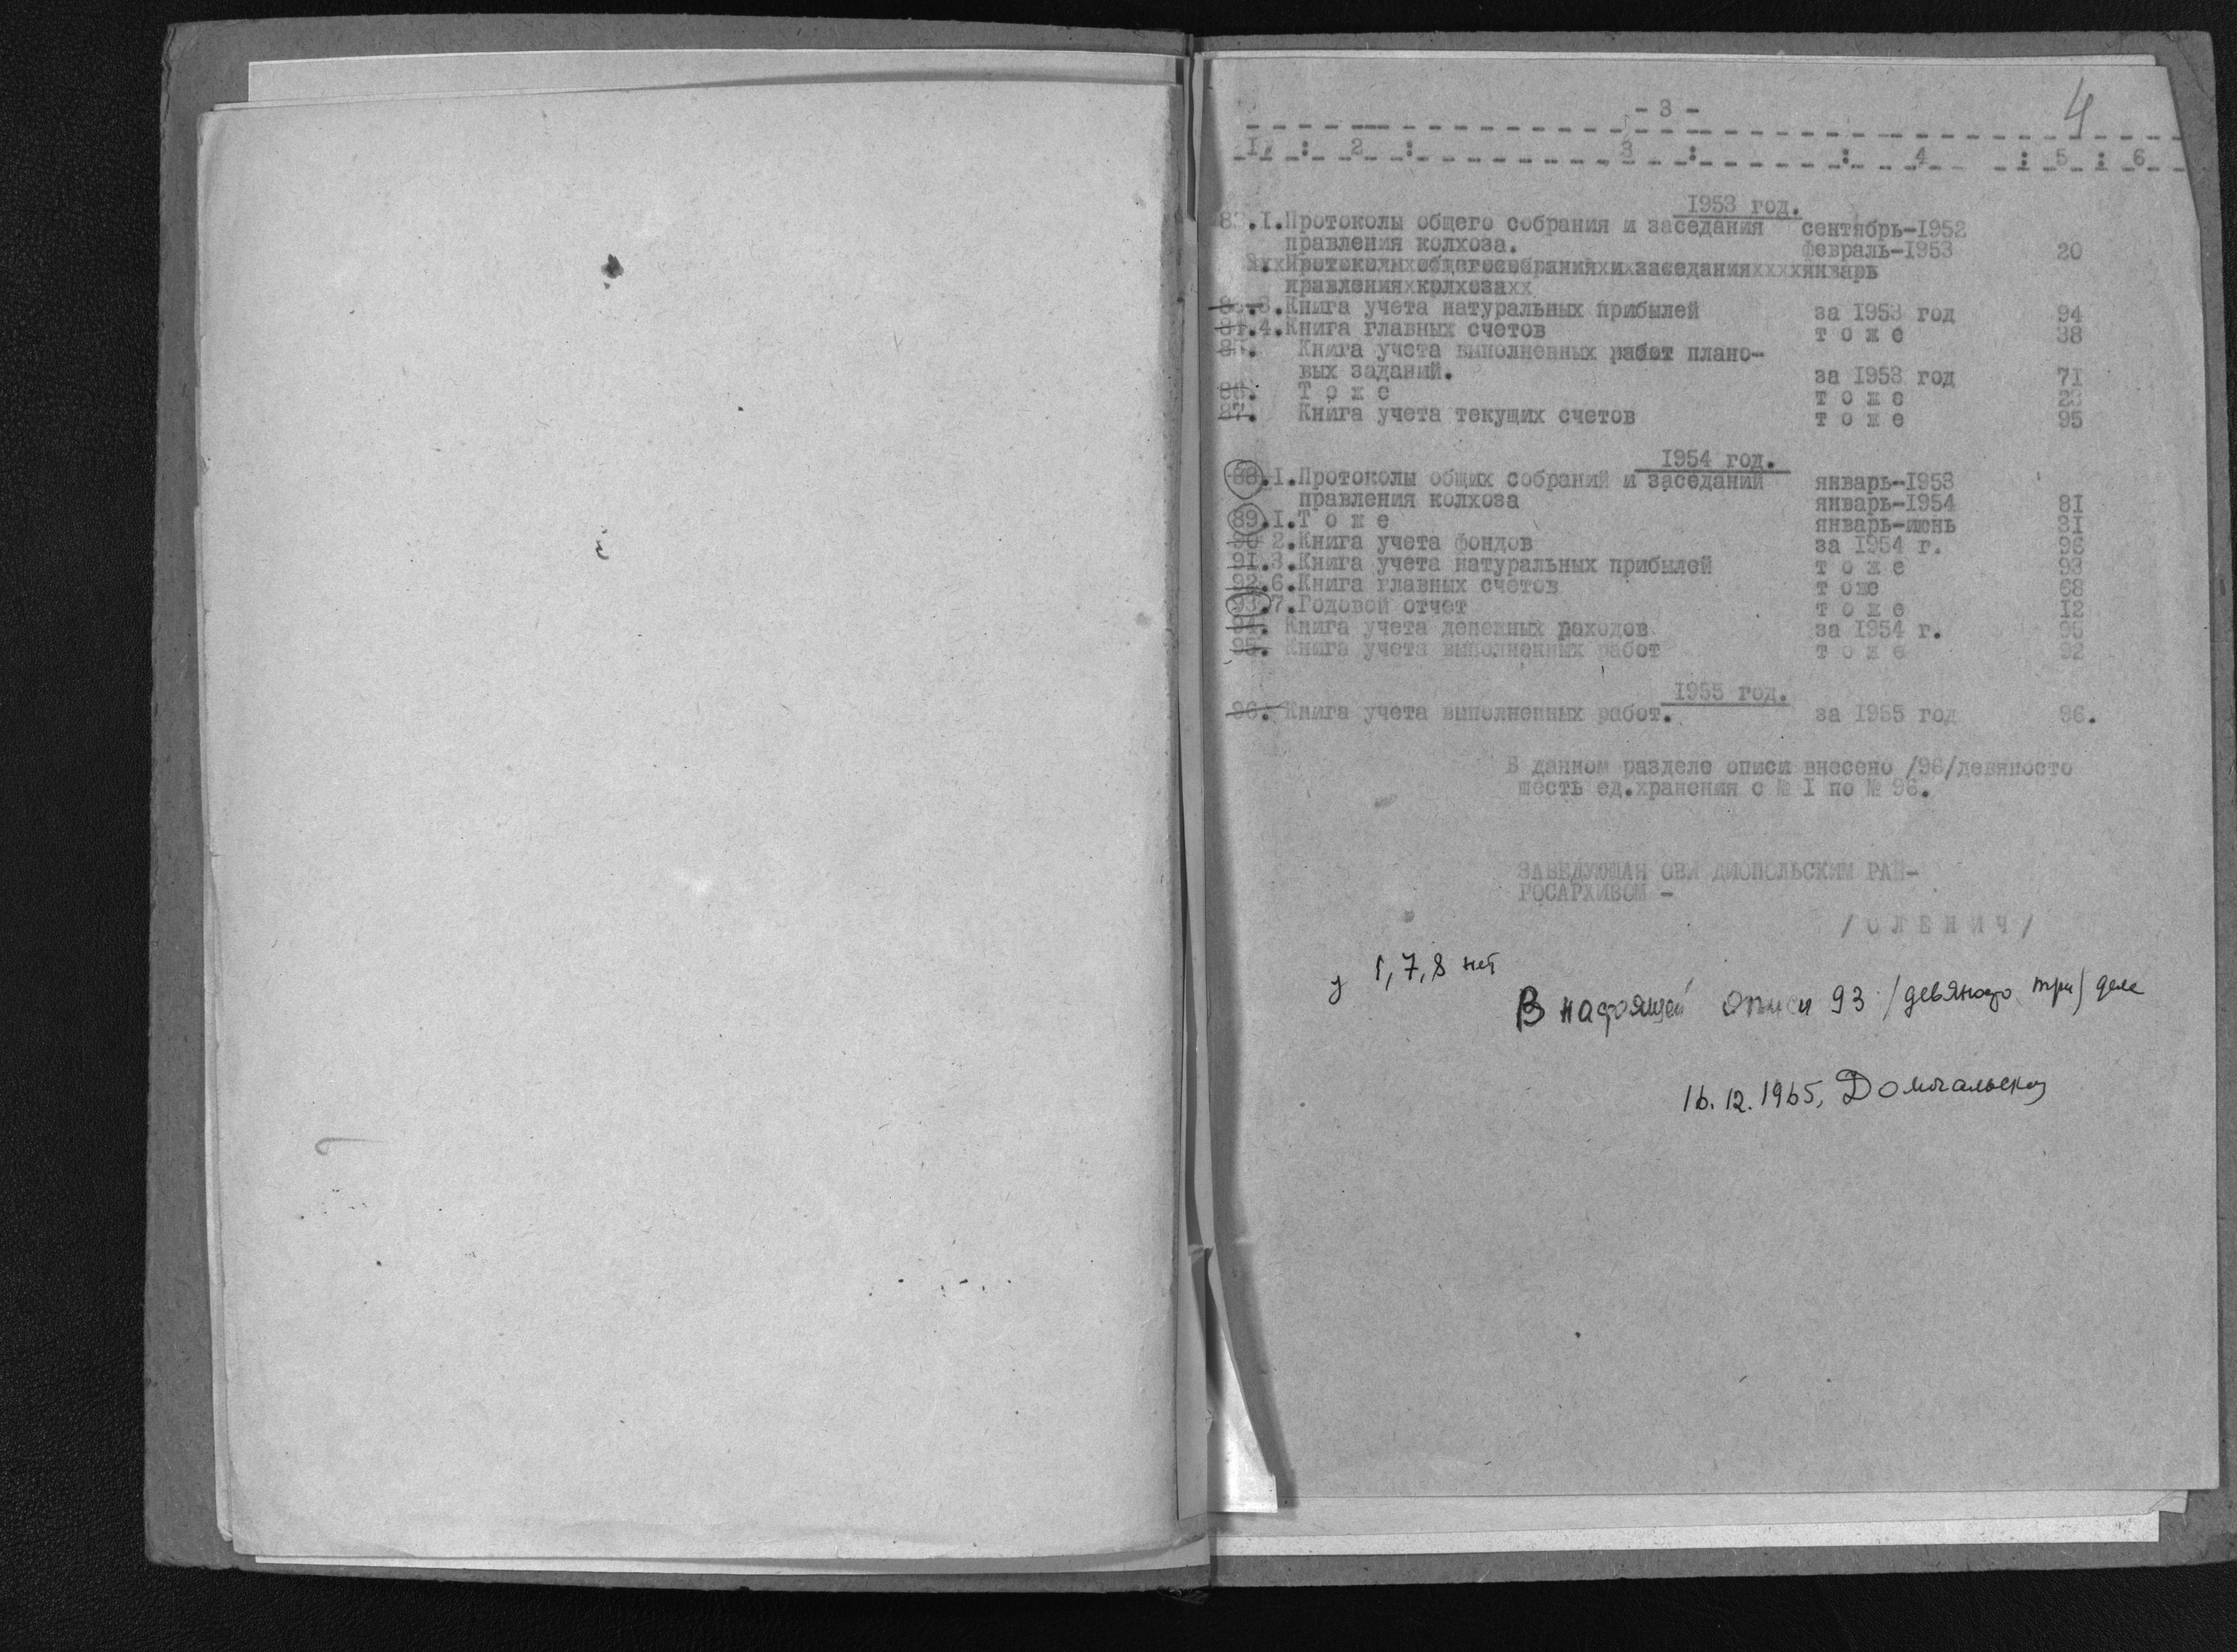 4
- 3 -
I : 2 : 3 : : 4 : 5 : 6
1953 год.
82.I.Протоколы общего собрания и заседания сентябрь-1952
правления колхоза. февраль-1953 20
2.xxПротоколыxобщегособранияxиxзаседанияxxxxянварь
правленияxколхозаxx
83.3.Книга учета натуральных прибылей за 1953 год 94
84.4.Книга главных счетов т о ж е 38
85. Книга учета выполненных работ плано-
вых заданий. за 1953 год 71
86. Т о ж е т о ж е
87. Книга учета текущих счетов т о ж е 95
1954 год.
88.I.Протоколы общих собраний и заседаний январь-1953
правления колхоза январь-1954 81
89.I.Т о ж е январь-июнь 31
90 2.Книга учета фондов за 1954 г. 96
91.3.Книга учета натуральных прибылей т о ж е 93
92.6.Книга главных счетов т оже 68
93.7.Годовой отчет т о ж е I2
94. Книга учета денежных раходов за 1954 г. 95
95. Книга учета выполненных работ т о ж е 92
1955 год.
96. Книга учета выполненных работ. за 1955 год 96.
В данном разделе описи внесено /96/девяносто
шесть ед.хранения с № I по № 96.
ЗАВЕДУЮЩАЯ ОВИДИОПОЛЬСКИМ РАЙ-
ГОСАРХИВОМ -
/ О Л Е Н И Ч /
1, 7, 8 нет
В настоящей описи 93 /девяносто три/ дела
16.12.1965,